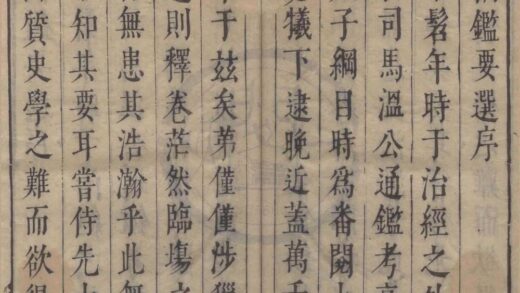 鑑要選序
髫年時于治經之外
司馬溫公通鑑考亭
子綱目時爲番閱上
犧下逮晚近蓋萬千
于玆矣弟僅僅涉獵
則釋卷茫然臨塲之
無患其浩瀚乎此無
知其要耳嘗侍先大
質史學之難而欲得